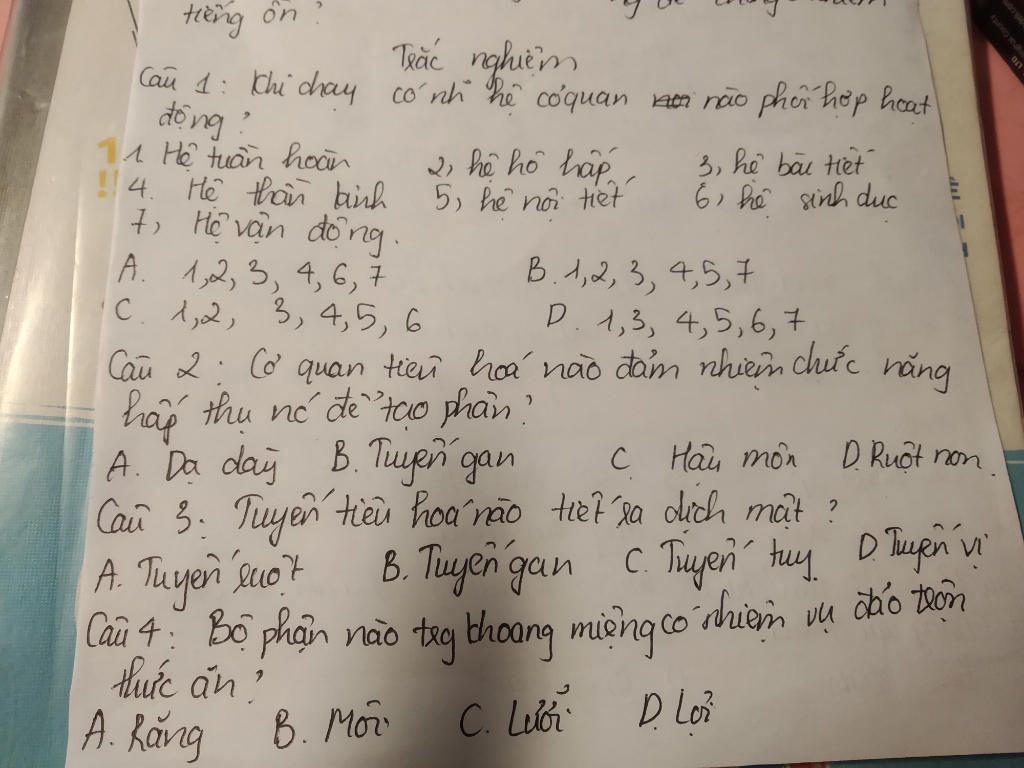 tiếng ồn?
Trắc nghiệm
Câu 1: Khi chạy có nh hệ cơ quan nào phối hợp hoạt
động?
1. Hệ tuần hoàn 2, hệ hô hấp 3, hệ bài tiết
4. Hệ thần kinh 5, hệ nội tiết 6, hệ sinh dục
7, Hệ vận động.
A. 1,2, 3, 4, 6, 7 B. 1,2, 3, 4,5, 7
C. 1,2, 3, 4, 5, 6 D. 1,3, 4,5, 6, 7
Câu 2: Cơ quan tiêu hoá nào đảm nhiệm chức năng
hấp thụ nc để tạo phân?
A. Dạ dày B. Tuyến gan C. Hậu môn D. Ruột non.
Câu 3: Tuyến tiêu hoá nào tiết ra dịch mật?
A. Tuyến ruột B. Tuyến gan C. Tuyến tuỵ D. Tuyến vị
Câu 4: Bộ phận nào trg khoang miệng có nhiệm vụ đảo trộn
thức ăn?
A. Răng B. Môi C. Lưỡi D. Lợi